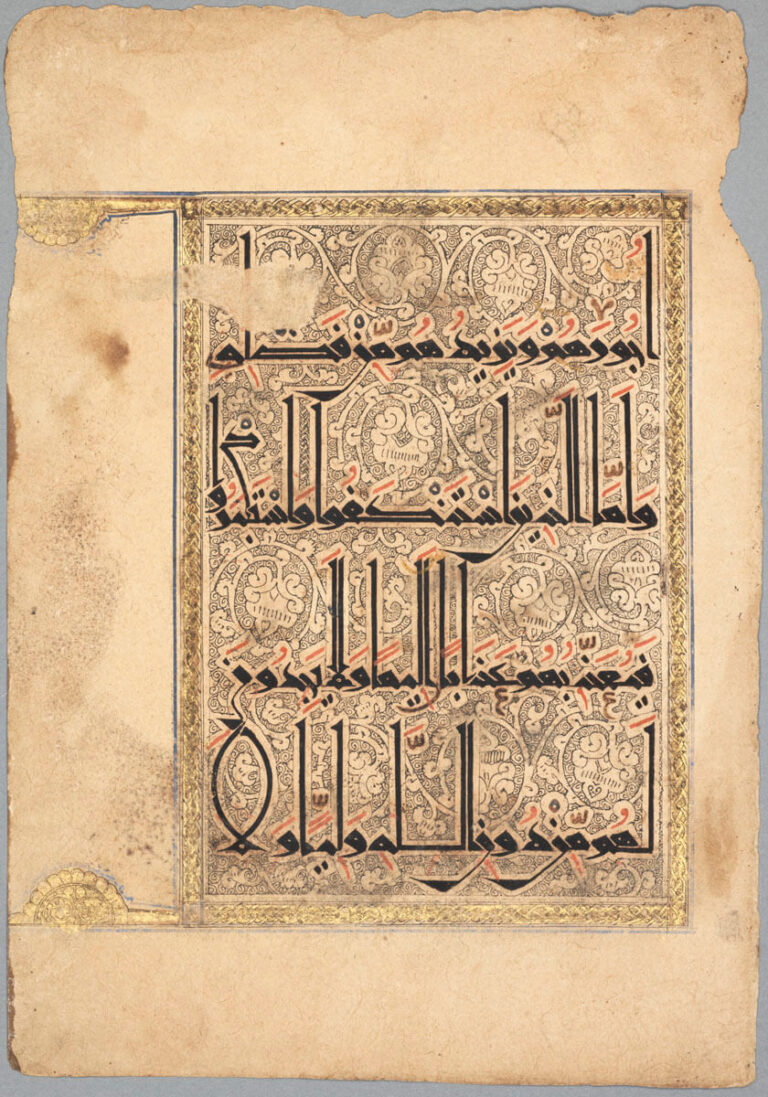 أُجُورَهُمْ وَيَزِيدُهُمْ مِنْ فَضْلِهِ
وَأَمَّا الَّذِينَ اسْتَنْكَفُوا وَاسْتَكْبَرُوا
فَيُعَذِّبُهُمْ عَذَابًا أَلِيمًا وَلَا يَجِدُونَ
لَهُمْ مِنْ دُونِ اللَّهِ وَلِيًّا وَلَا